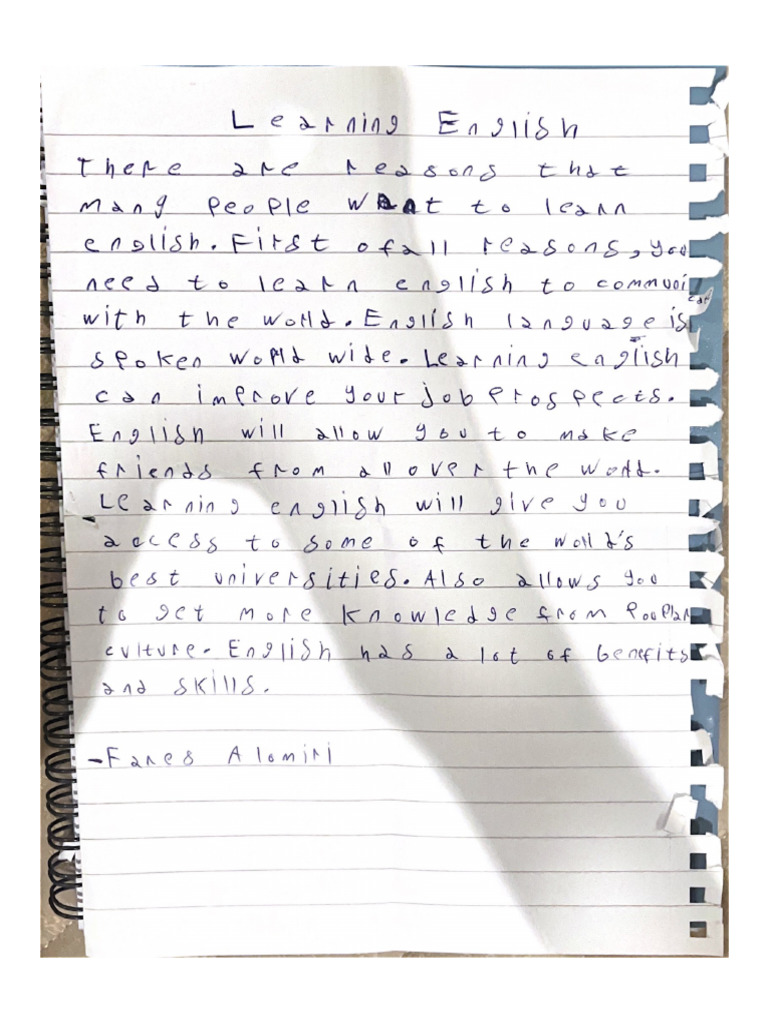 Learning English
There are reasons that
many people want to learn
english. First of all reasons, you
need to learn english to communicat
with the world. English language is
spoken world wide. Learning english
can improve your job prospects.
English will allow you to make
friends from all over the world.
Learning english will give you
access to some of the world's
best universities. Also allows you
to get more knowledge from Pooplar
culture. English has a lot of benefits
and skills.
-Fares Alomiri